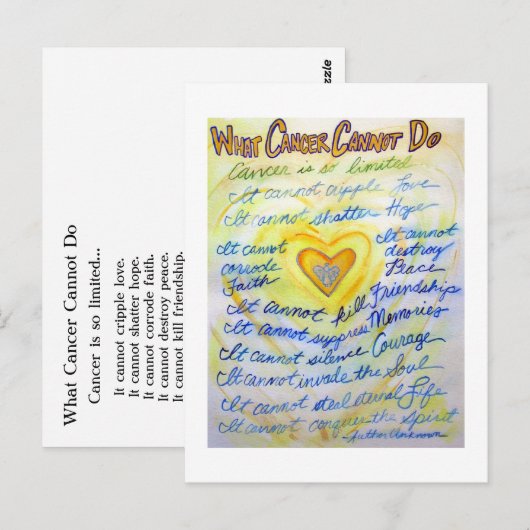 What Cancer Cannot Do
Cancer is so limited...
It cannot cripple love.
It cannot shatter hope.
It cannot corrode faith.
It cannot destroy peace.
It cannot kill friendship.
zzle
WHAT CANCER CANNOT DO
Cancer is so limited
It cannot cripple Love
It cannot shatter Hope
It cannot
corrode
Faith
It cannot
destroy
Peace
It cannot kill Friendship
It cannot suppress Memories
It cannot silence Courage
It cannot invade the Soul
It cannot steal eternal Life
It cannot conquer the Spirit
-Author Unknown